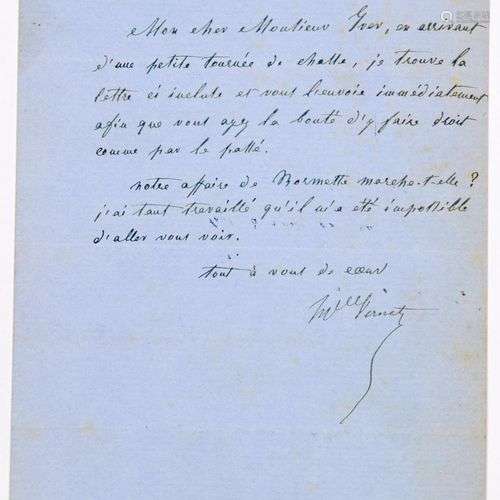 Mon cher Monsieur Yver, en arrivant
d'une petite tournée de chasse, je trouve la
lettre ci incluse et vous l'envoie immédiatement
afin que vous ayez la bonté d'y faire droit
comme par le passé.
notre affaire de Normette marche-t-elle ?
j'ai tant travaillé qu'il m'a été impossible
d'aller vous voir.
tout à vous de cœur